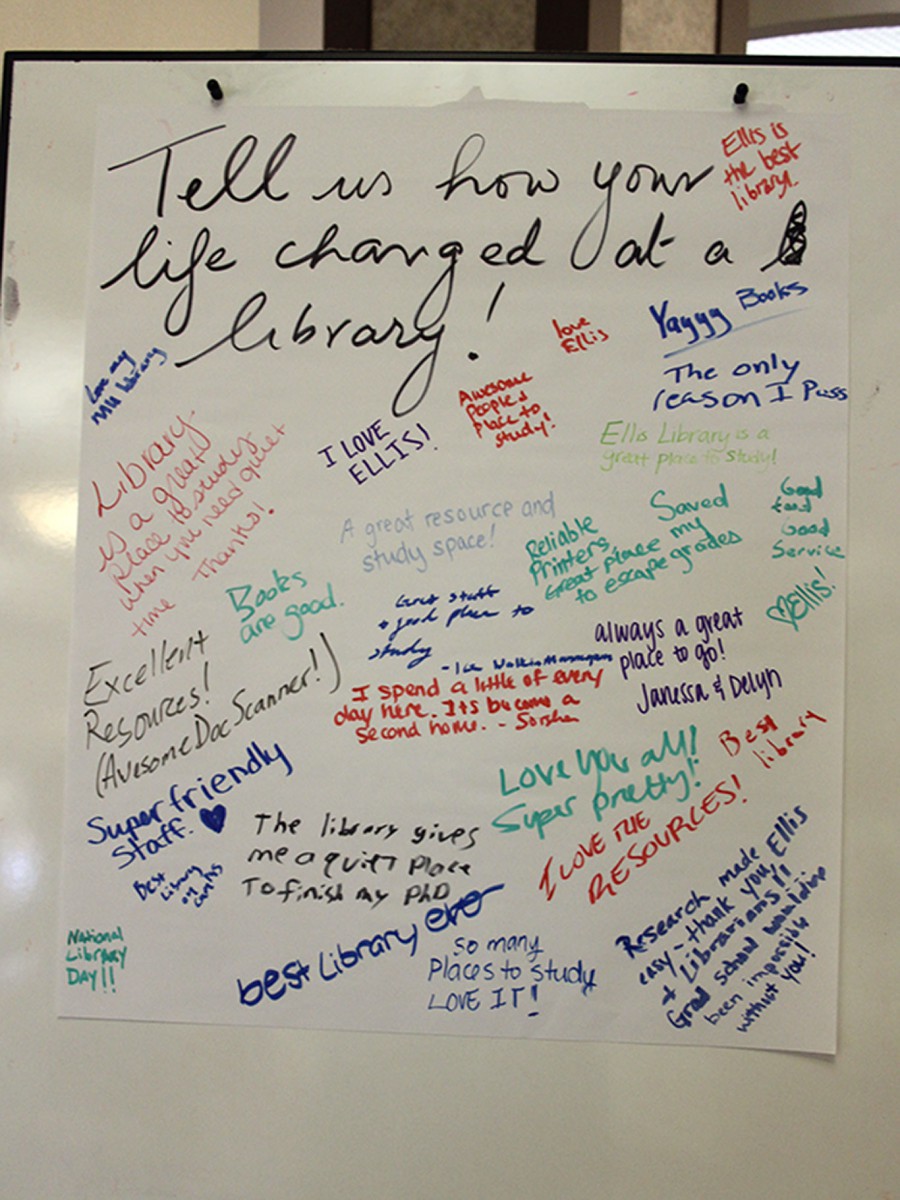 Tell us how your
life changed at a
library!
Ellis is
the best
library.
love
Ellis
Yayyy Books
The only
reason I Pass
Love my
MU Library
Awesome
People &
place to
study!
I LOVE
ELLIS!
Ellis Library is a
great place to study!
Library
is a great
place to study
when you need quiet
time Thanks!
A great resource and
study space!
Reliable
Printers
Saved
my
grades
Great place
to escape
Good
food
Good
Service
Books
are good.
Great stuff
+ good place to
study
♡Ellis!
always a great
place to go!
Janessa & Delyn
Excellent
Resources!
(Awesome Doc Scanner!)
I spend a little of every
day here. Its become a
second home. - Sorsha
Love you all!
Super pretty!
Best
library
Super friendly
Staff. ♥
I LOVE THE
RESOURCES!
The library gives
me a quiet place
To finish my PhD
Best
Library
on campus
best Library ever
National
Library
DAY!!
So many
Places to study
LOVE IT!
Research made
easy - thank you, Ellis
& Librarians!!
Grad school would've
been impossible
without you!